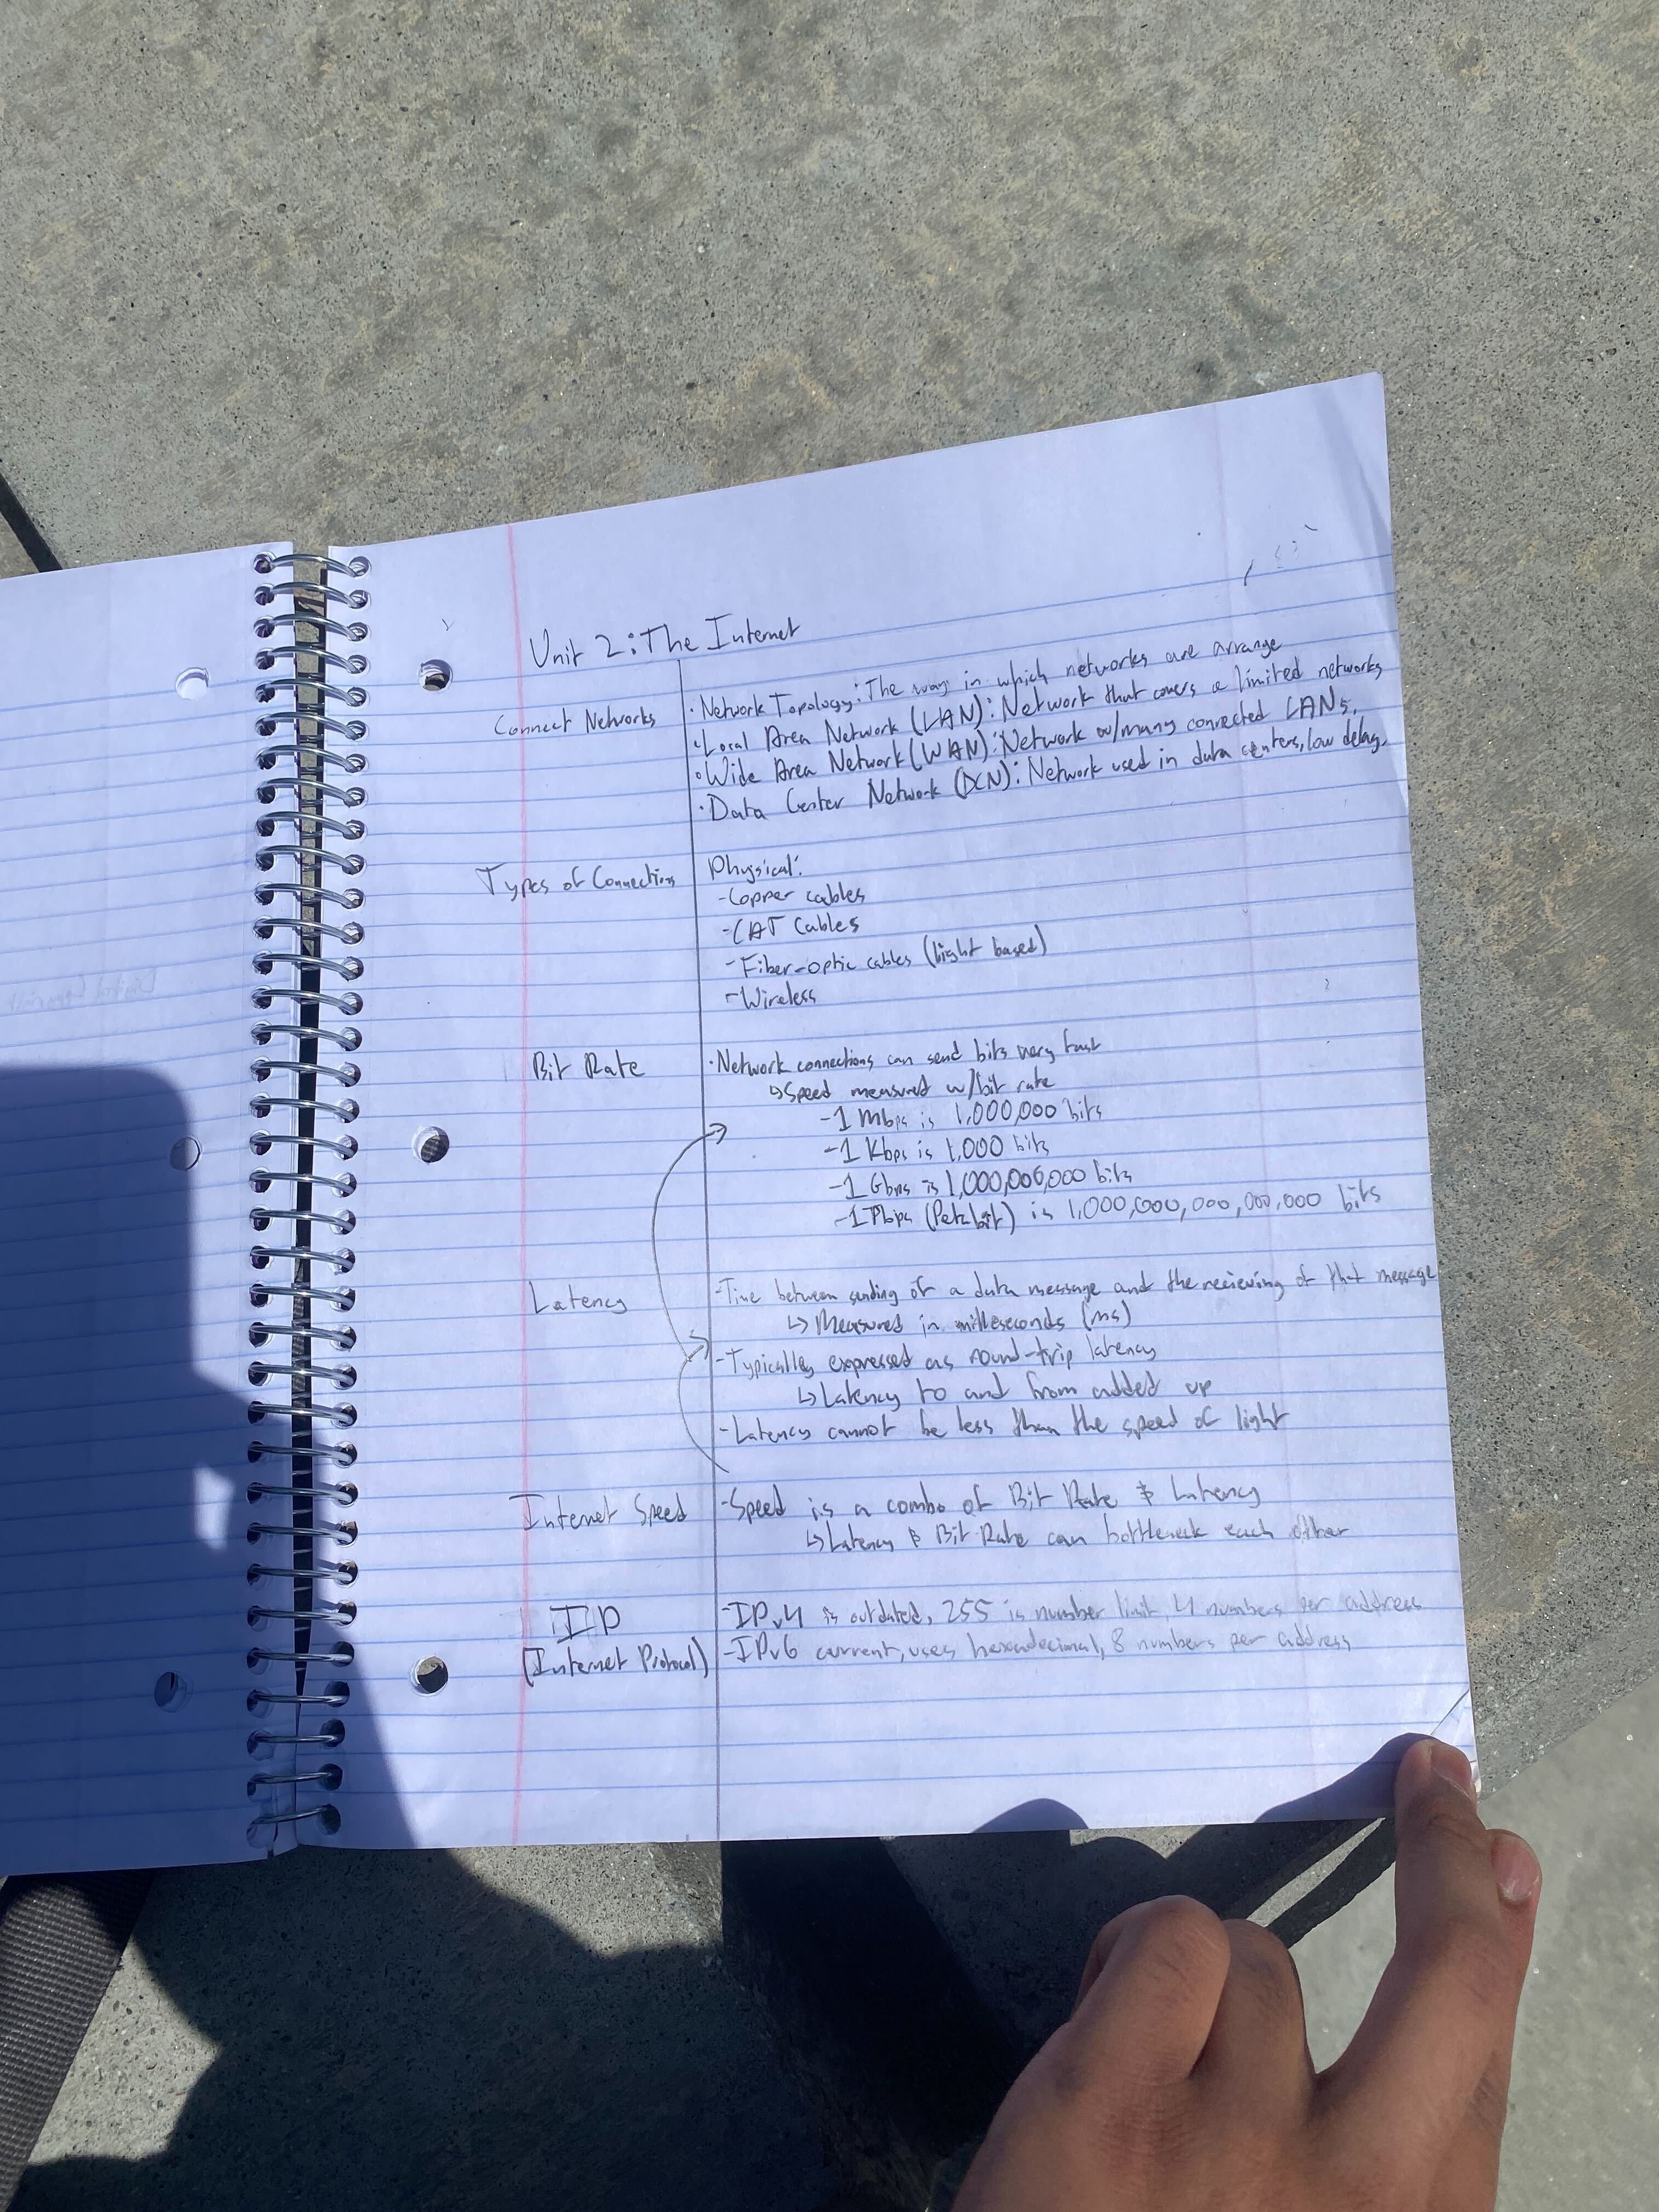 Unit 2: The Internet
Connect Networks
· Network Topology: The way in which networks are arrange
· Local Area Network (LAN): Network that covers a limited networks
· Wide Area Network (WAN): Network w/many connected LANs.
· Data Center Network (DCN): Network used in data centers, low delay.
Types of Connections
Physical:
- Copper cables
- CAT Cables
- Fiber-optic cables (light based)
- Wireless
Bit Rate
· Network connections can send bits very fast
↳ Speed measured w/bit rate
- 1 Mbps is 1,000,000 bits
- 1 Kbps is 1,000 bits
- 1 Gbps is 1,000,000,000 bits
- 1 Pbps (Petabit) is 1,000,000,000,000,000 bits
Latency
- Time between sending of a data message and the recieving of that message
↳ Measured in milleseconds (ms)
- Typically expressed as round-trip latency
↳ Latency to and from added up
- Latency cannot be less than the speed of light
Internet Speed
- Speed is a combo of Bit Rate & Latency
↳ Latency & Bit Rate can bottleneck each other
IP
(Internet Protocol)
- IPv4 is outdated, 255 is number limit, 4 numbers per address
- IPv6 current, uses hexadecimal, 8 numbers per address